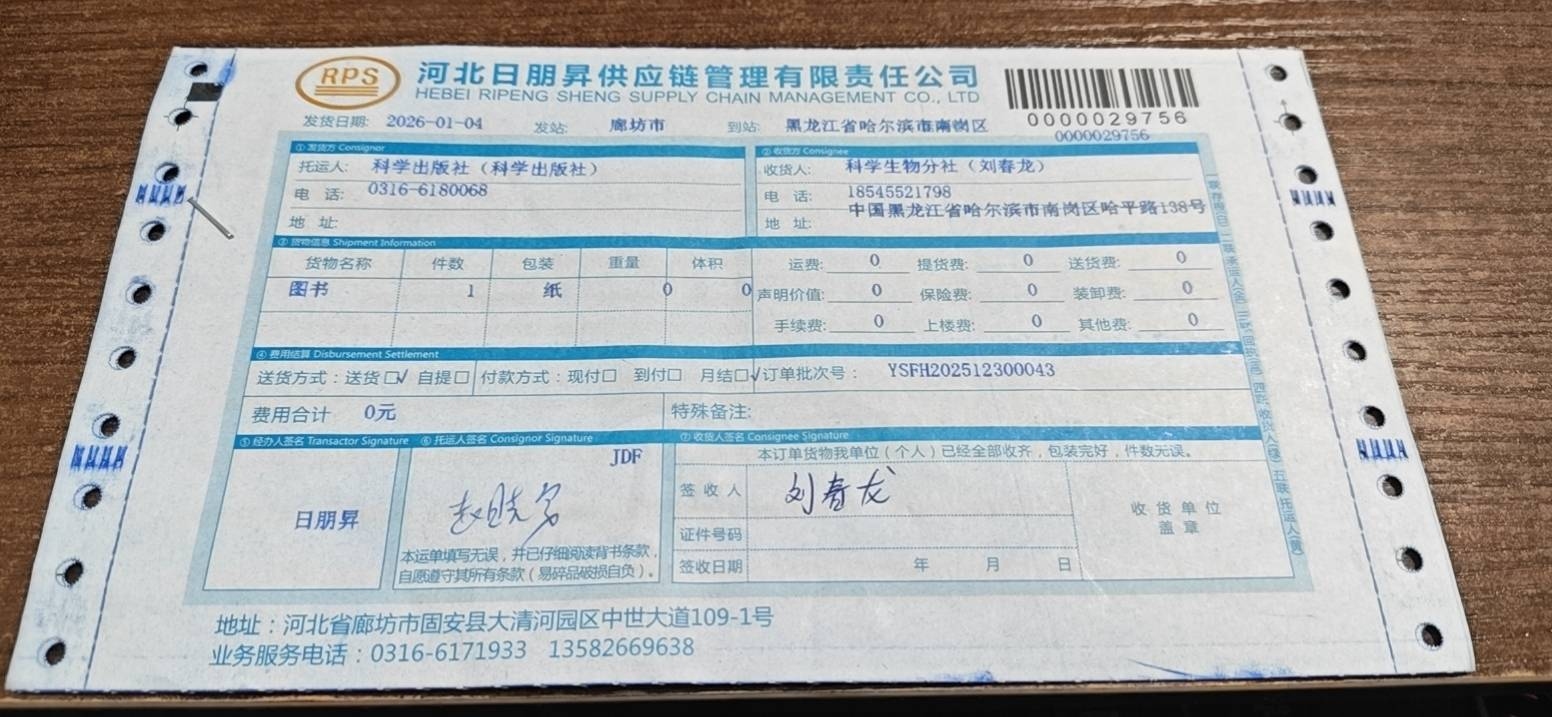 RPS 河北日朋昇供应链管理有限责任公司
HEBEI RIPENG SHENG SUPPLY CHAIN MANAGEMENT CO., LTD
0000029756
发货日期: 2026-01-04 发站: 廊坊市 到站: 黑龙江省哈尔滨市南岗区 0000029756
①发货方 Consignor ②收货方 Consignee
托运人: 科学出版社（科学出版社） 收货人: 科学生物分社（刘春龙）
电 话: 0316-6180068 电 话: 18545521798
地 址: 地 址: 中国黑龙江省哈尔滨市南岗区哈平路138号
③ 货物信息 Shipment Information
货物名称 件数 包装 重量 体积 运费: 0 提货费: 0 送货费: 0
图书 1 纸 0 0 声明价值: 0 保险费: 0 装卸费: 0
手续费: 0 上楼费: 0 其他费: 0
④ 费用结算 Disbursement Settlement
送货方式：送货□√ 自提□ 付款方式：现付□ 到付□ 月结□√ 订单批次号： YSFH202512300043
费用合计 0元 特殊备注:
⑤ 经办人签名 Transactor Signature ⑥ 托运人签名 Consignor Signature ⑦ 收货人签名 Consignee Signature
JDF 本订单货物我单位（个人）已经全部收齐，包装完好，件数无误。
签收人 刘春龙
日朋昇 收货单位
盖章
证件号码
本运单填写无误，并已仔细阅读背书条款，
自愿遵守其所有条款（易碎品破损自负）。
签收日期 年 月 日
地址：河北省廊坊市固安县大清河园区中世大道109-1号
业务服务电话：0316-6171933 13582669638